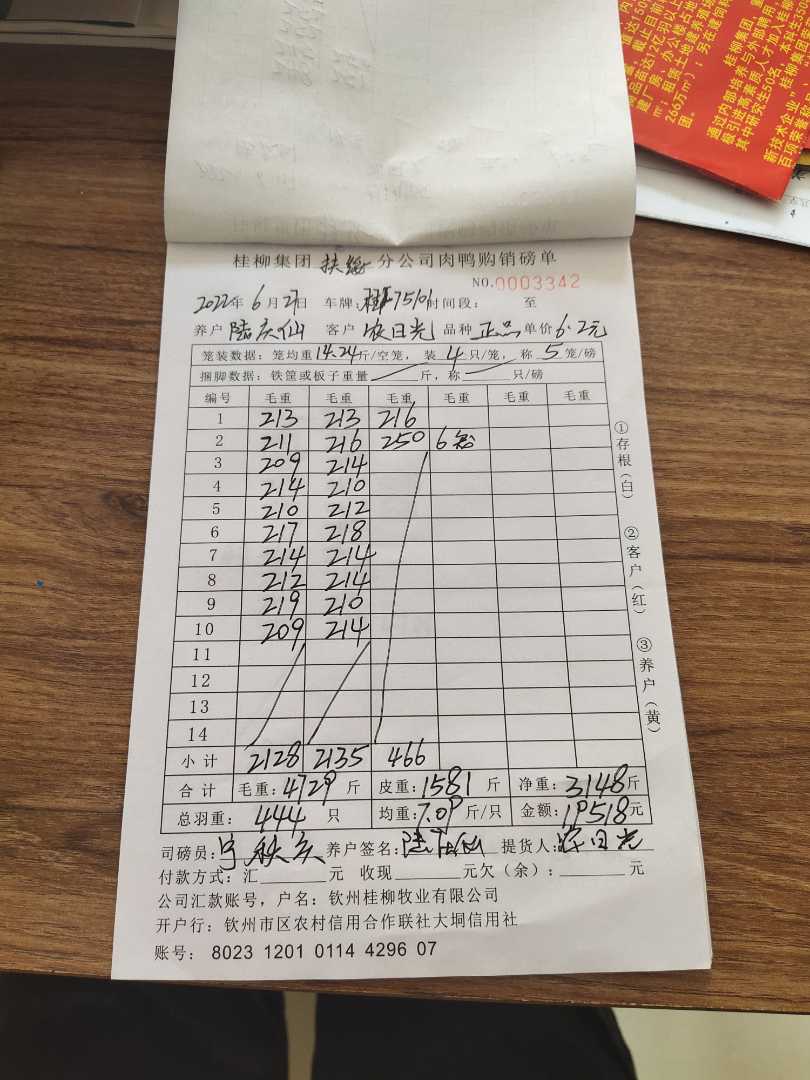 桂柳集团 扶绥 分公司肉鸭购销磅单
NO.0003342
2022年 6月27日 车牌: 桂 75101 时间段: 至
养户 陆庆仙 客户 农日光 品种 正品 单价 6.2元
笼装数据: 笼均重 14.24 斤/空笼, 装 4 只/笼, 称 5 笼/磅
捆脚数据: 铁筐或板子重量 斤, 称 只/磅
编号 毛重 毛重 毛重 毛重 毛重 毛重
1 213 213 216
2 211 216 250 6笼
3 209 214
4 214 210
5 210 212
6 217 218
7 214 214
8 212 214
9 219 210
10 209 214
11
12
13
14
小计 2128 2135 466
合计 毛重: 4729 斤 皮重: 1581 斤 净重: 3148 斤
总羽重: 444 只 均重: 7.09 斤/只 金额: 19518 元
司磅员: 养户签名: 陆庆仙 提货人: 农日光
付款方式: 汇 元 收现 元欠(余): 元
公司汇款账号, 户名: 钦州桂柳牧业有限公司
开户行: 钦州市区农村信用合作联社大垌信用社
账号: 8023 1201 0114 4296 07
①存根(白)
②客户(红)
③养户(黄)
266万㎡);另在
通过内部培养与外部聘用,
引进高素质人才加入桂柳
其中研究生50名,本科生
新技术企业"
百项荣誉称